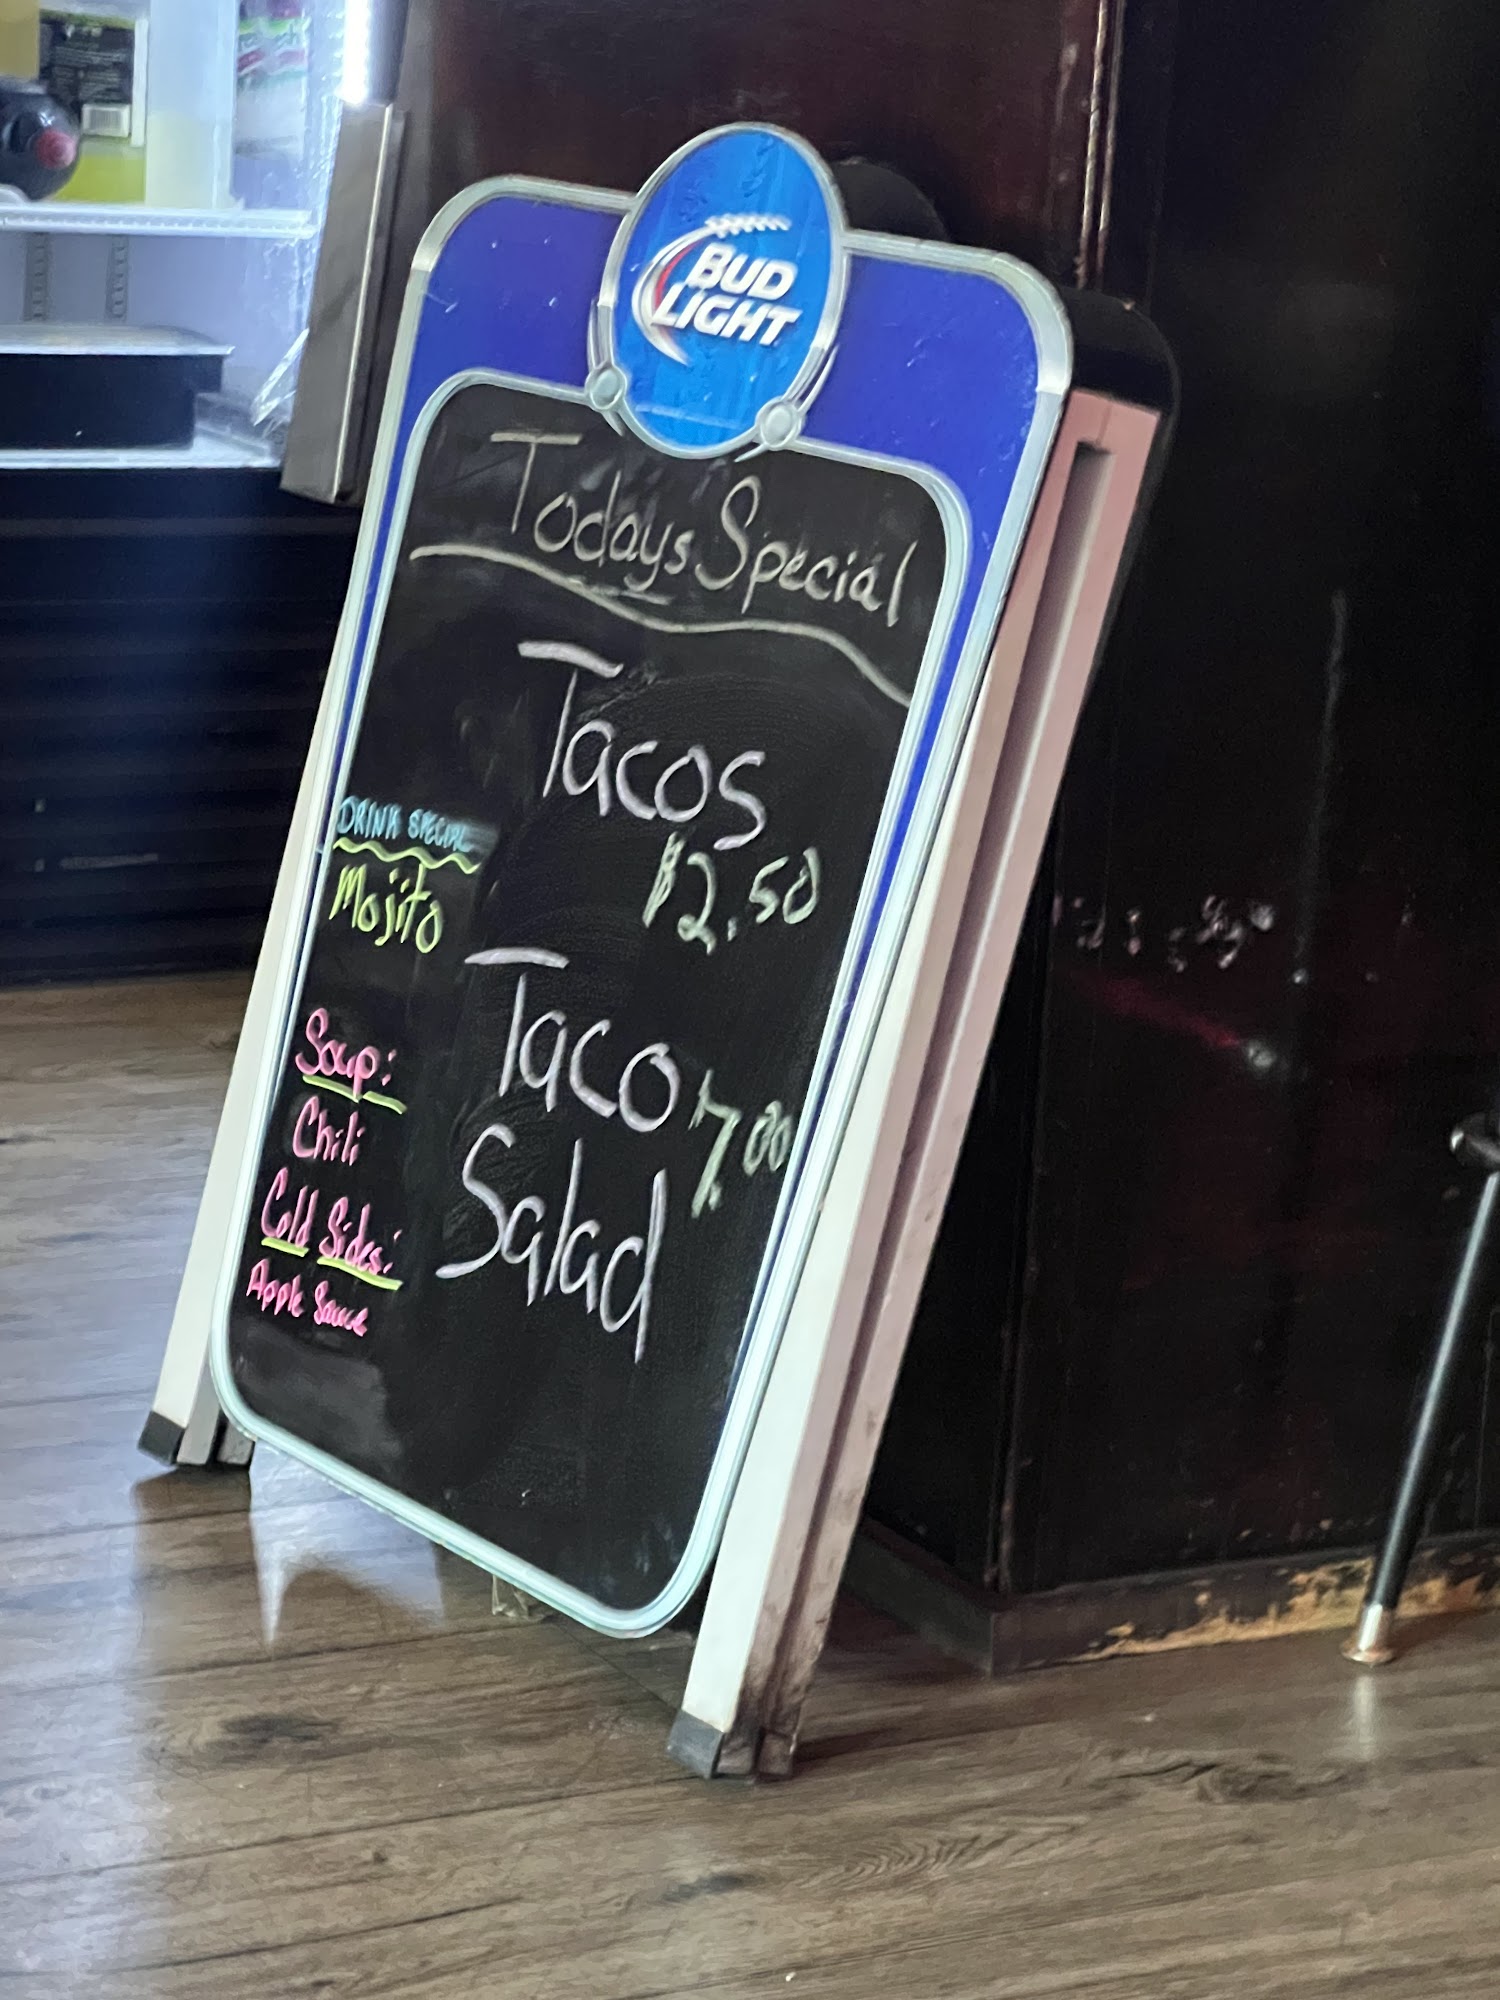 BUD
LIGHT
Todays Special
Tacos
$2.50
Taco
Salad
$7.00
DRINK SPECIAL
Mojito
Soup:
Chili
Cold Sides:
Apple Sauce